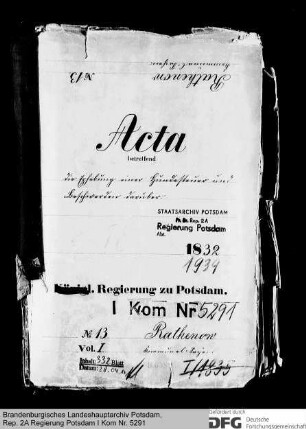 No 13
Rathenow
Acta
betreffend
die Erhebung einer Hundesteuer und
Beschwerden darüber
STAATSARCHIV POTSDAM
Pr. Br. Rep. 2A
Regierung Potsdam
Abt.
1832
1934
Regierung zu Potsdam.
I Kom Nr 5291
No 13
Rathenow
Vol. I
I/1835
Brandenburgisches Landeshauptarchiv Potsdam,
Rep. 2A Regierung Potsdam I Kom Nr. 5291
Gefördert durch
DFG Deutsche
Forschungsgemeinschaft